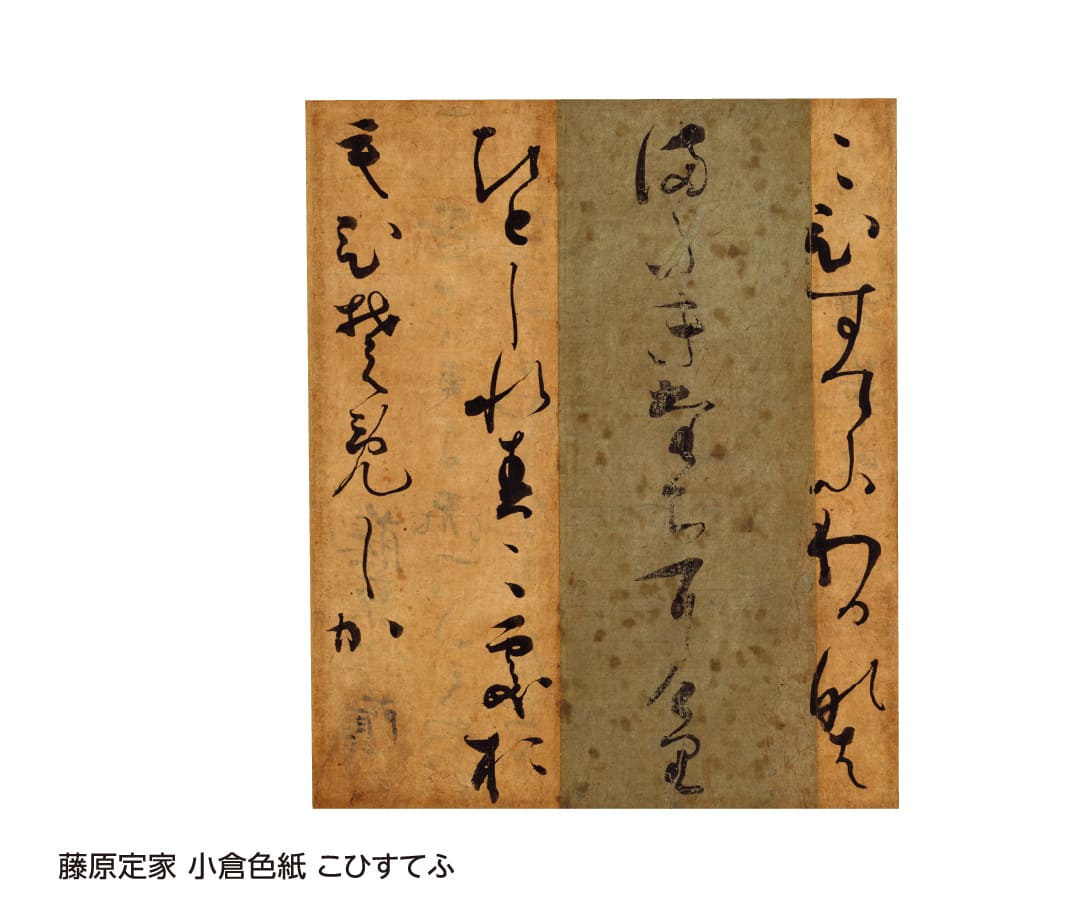 こひすてふわかなは
またきたちにけり
ひとしれすこそお
もひそめしか
藤原定家 小倉色紙 こひすてふ